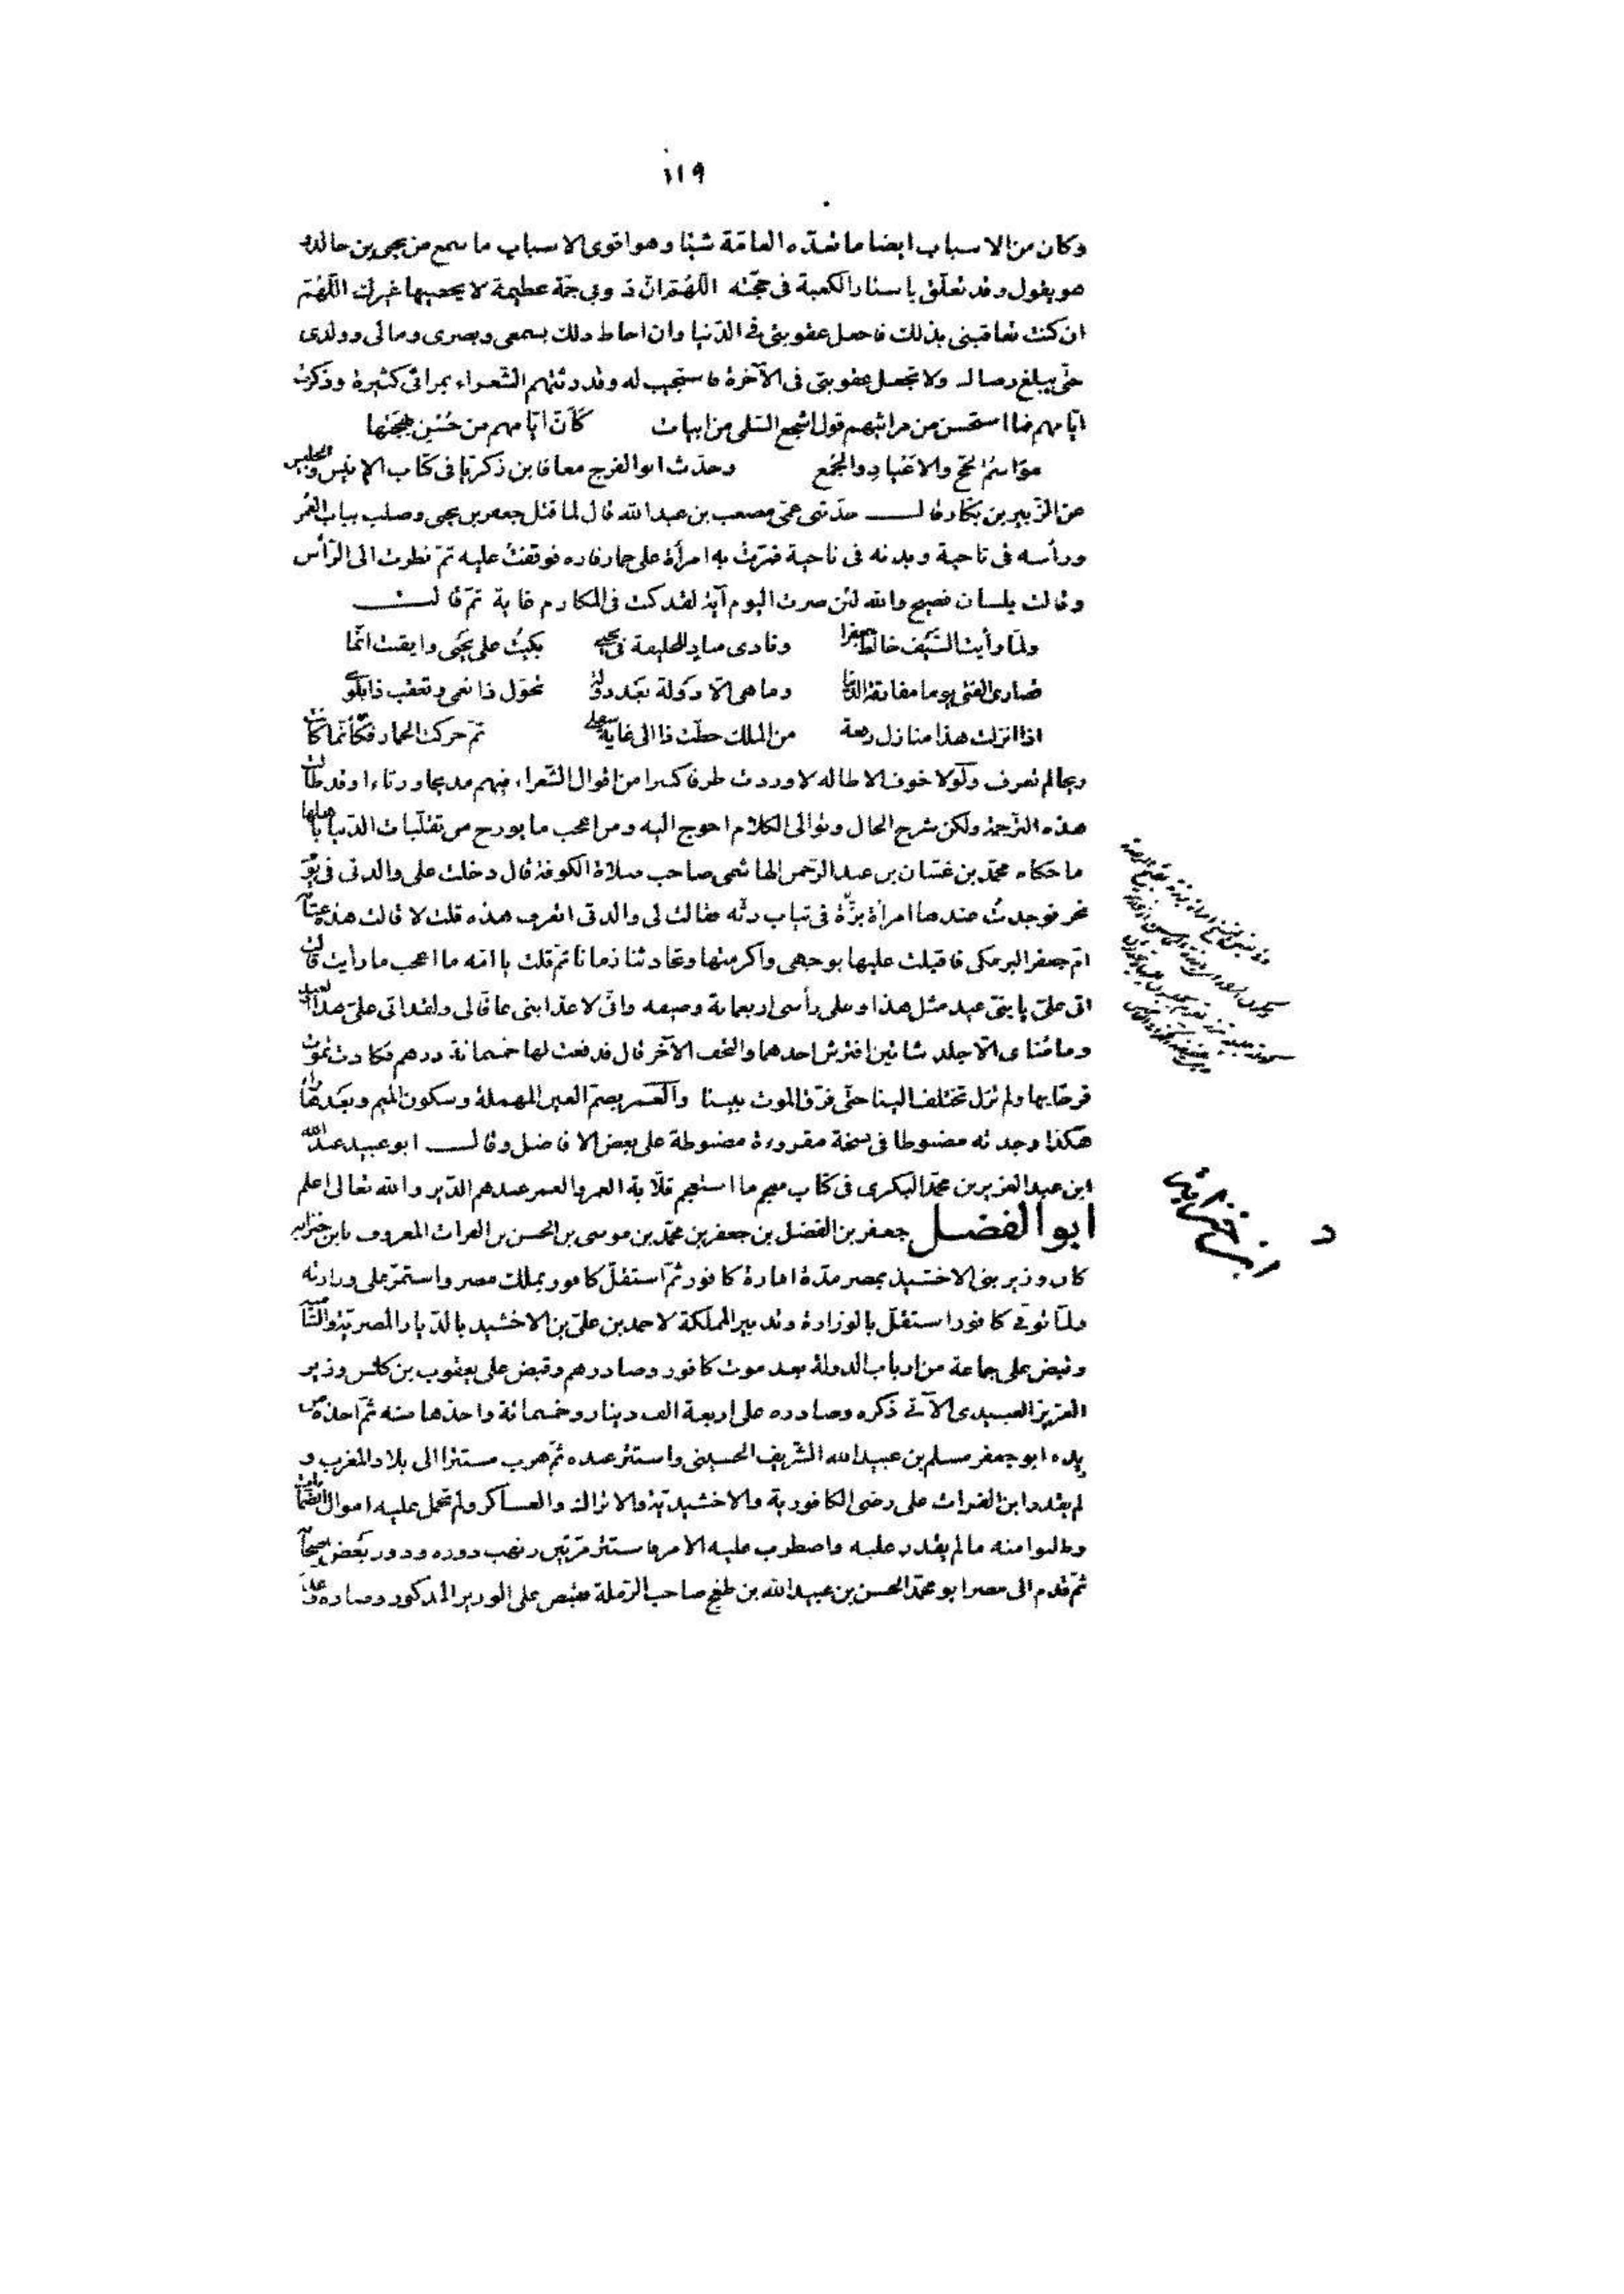 ١١٩
وكان من الاسباب ايضا ما تعدّه العامّة شيئا وهو اقوى الاسباب ما سمع من يحيى بن خالد و
هو يقول وقد تعلّق باستار الكعبة فى حجّته اللّهُمّ انّ ذنوبى جمّة عظيمة لا يحصيها غيرك اللّهُمّ
ان كنت تعاقبنى بذلك فاجعل عقوبتى فى الدّنيا وان احاط ذلك بسمعى وبصرى ومالى وولدى
حتّى يبلغ رضاك ولا تجعل عقوبتى فى الآخرة فاستجيب له وقد رثتهم الشّعراء بمراثى كثيرة وذكرت
ايّامهم فما استحسن من مراثيهم قول اشجع السّلمى من ابيات كَأَنّ ايّامهم من حُسْنِ بهجتها
مَوَاسِمُ الحجّ والاعْيادِ والجُمَع وحدّث ابو الفرج معافا بن ذكريّا فى كتاب الانيس والجليس
عن الزّبير بن بكّار قال حدّثنى عمّى مصعب بن عبد الله قال لما قتل جعفر بن يحيى وصلب بباب العُمر
ورأسه فى ناحية وبدنه فى ناحية فمرّت به امرأة على حمار فاره فوقفت عليه ثمّ نظرت الى الرّأس
وقالت بلسان فصيح والله لئن صرت اليوم آية لقد كنت فى المكارم غاية ثمّ قالت
ولمّا رأيت السّيف خالط جعفرا ونادى مناد للخليفة فى يحيى بكيتُ على يَحيى وايقنت انّما
قصارى الفتى يوما مفارقة الدنيا وما هى الّا دَولة بَعد دولة تخوّل ذا نعمى وتعقب ذا بلوى
اذا انزلت هذا منازل رفعة من الملك حطّت ذا الى غاية سفلى ثمّ حركت الحمار فكأنّما كانت
ريحا لم تعرف ولَولا خوف الاطاله لاوردت طرفا كبيرا من اقوال الشّعراء فيهم مديحا ورثاء وقد طالت
هذه التّرجمة ولكن شرح الحال وتوالى الكلام احوج اليه ومن اعجب ما يورّخ من تقلّبات الدّنيا باهلها
ما حكاه محمّد بن غسّان بن عبد الرّحمن الهاشمى صاحب صلاة الكوفة قال دخلت على والدتى فى يوم
نحر فوجدتُ عندها امرأة بَرْزة فى ثياب رثّه فقالت لى والدتى اتعرف هذه قلت لا قالت هذه عتّابة
امّ جعفر البرمكى فاقبلت عليها بوجهى واكرمتها وتحادثنا زمانا ثمّ قلت يا امّه ما اعجب ما رأيت قالت
اتى علىّ يا بنىّ عيد مثل هذا وعلى رأسى اربعماية وصيفه وانّى لاعدّ ابنى عاقّا لى ولقد اتى علىّ هذا العيد
وما مُناى الّا جلد شاتين افترش احدهما والتحف الآخر قال فدفعت لها خمسمائة درهم فكادت تموت
فرحا بها ولم تزل تختلف الينا حتّى فرّق الموت بيننا والعُمر بضمّ العين المهملة وسكون الميم وبعَدها راء
هكذا وجدته مضبوطا فى نسخة مقروءة مضبوطة على بعض الافاضل وقال ابو عبيد عبد الله
ابن عبد العزيز بن محمّد البكرى فى كتاب معجم ما استعجم قلّاية العمر والعمر عندهم الدّير والله تعالى اعلم
ابو الفضل جعفر بن الفضل بن جعفر بن محمّد بن موسى بن الحسن بن الفرات المعروف بابن خنزابه
كان وزير بنى الاخشيذ بمصر مدّة امارة كافور ثمّ استقلّ كافور بملك مصر واستمرّ على وزارته
ولمّا توفّى كافور استقلّ بالوزارة وتدبير المملكة لاحمد بن علىّ بن الاخشيد بالدّيار المصريّة والشّامية
وقبض على جماعة من ارباب الدولة بعد موت كافور وصادرهم وقبض على يعقوب بن كلّس وزير
العزيز العبيدى الآتى ذكره وصادره على اربعة الف دينار وخمسمائة واخذها منه ثمّ اخذه من
يده ابو جعفر مسلم بن عبيد الله الشّريف الحسينى واستتر عنده ثمّ هرب مستترا الى بلاد المغرب و
لم يقدر ابن الفرات على رضى الكافورية والاخشيديّة والاتراك والعساكر ولم تحمل عليه اموال الضّمانات
وطلبوا منه ما لم يقدر عليه واضطرب عليه الامر فاستتر مرّتين ونهب دوره ودور بعض اصحابه
ثمّ قدم الى مصر ابو محمّد الحسن بن عبيد الله بن طغج صاحب الرّملة فقبض على الوزير المذكور وصادره وعذّبه
ابن خنزابه